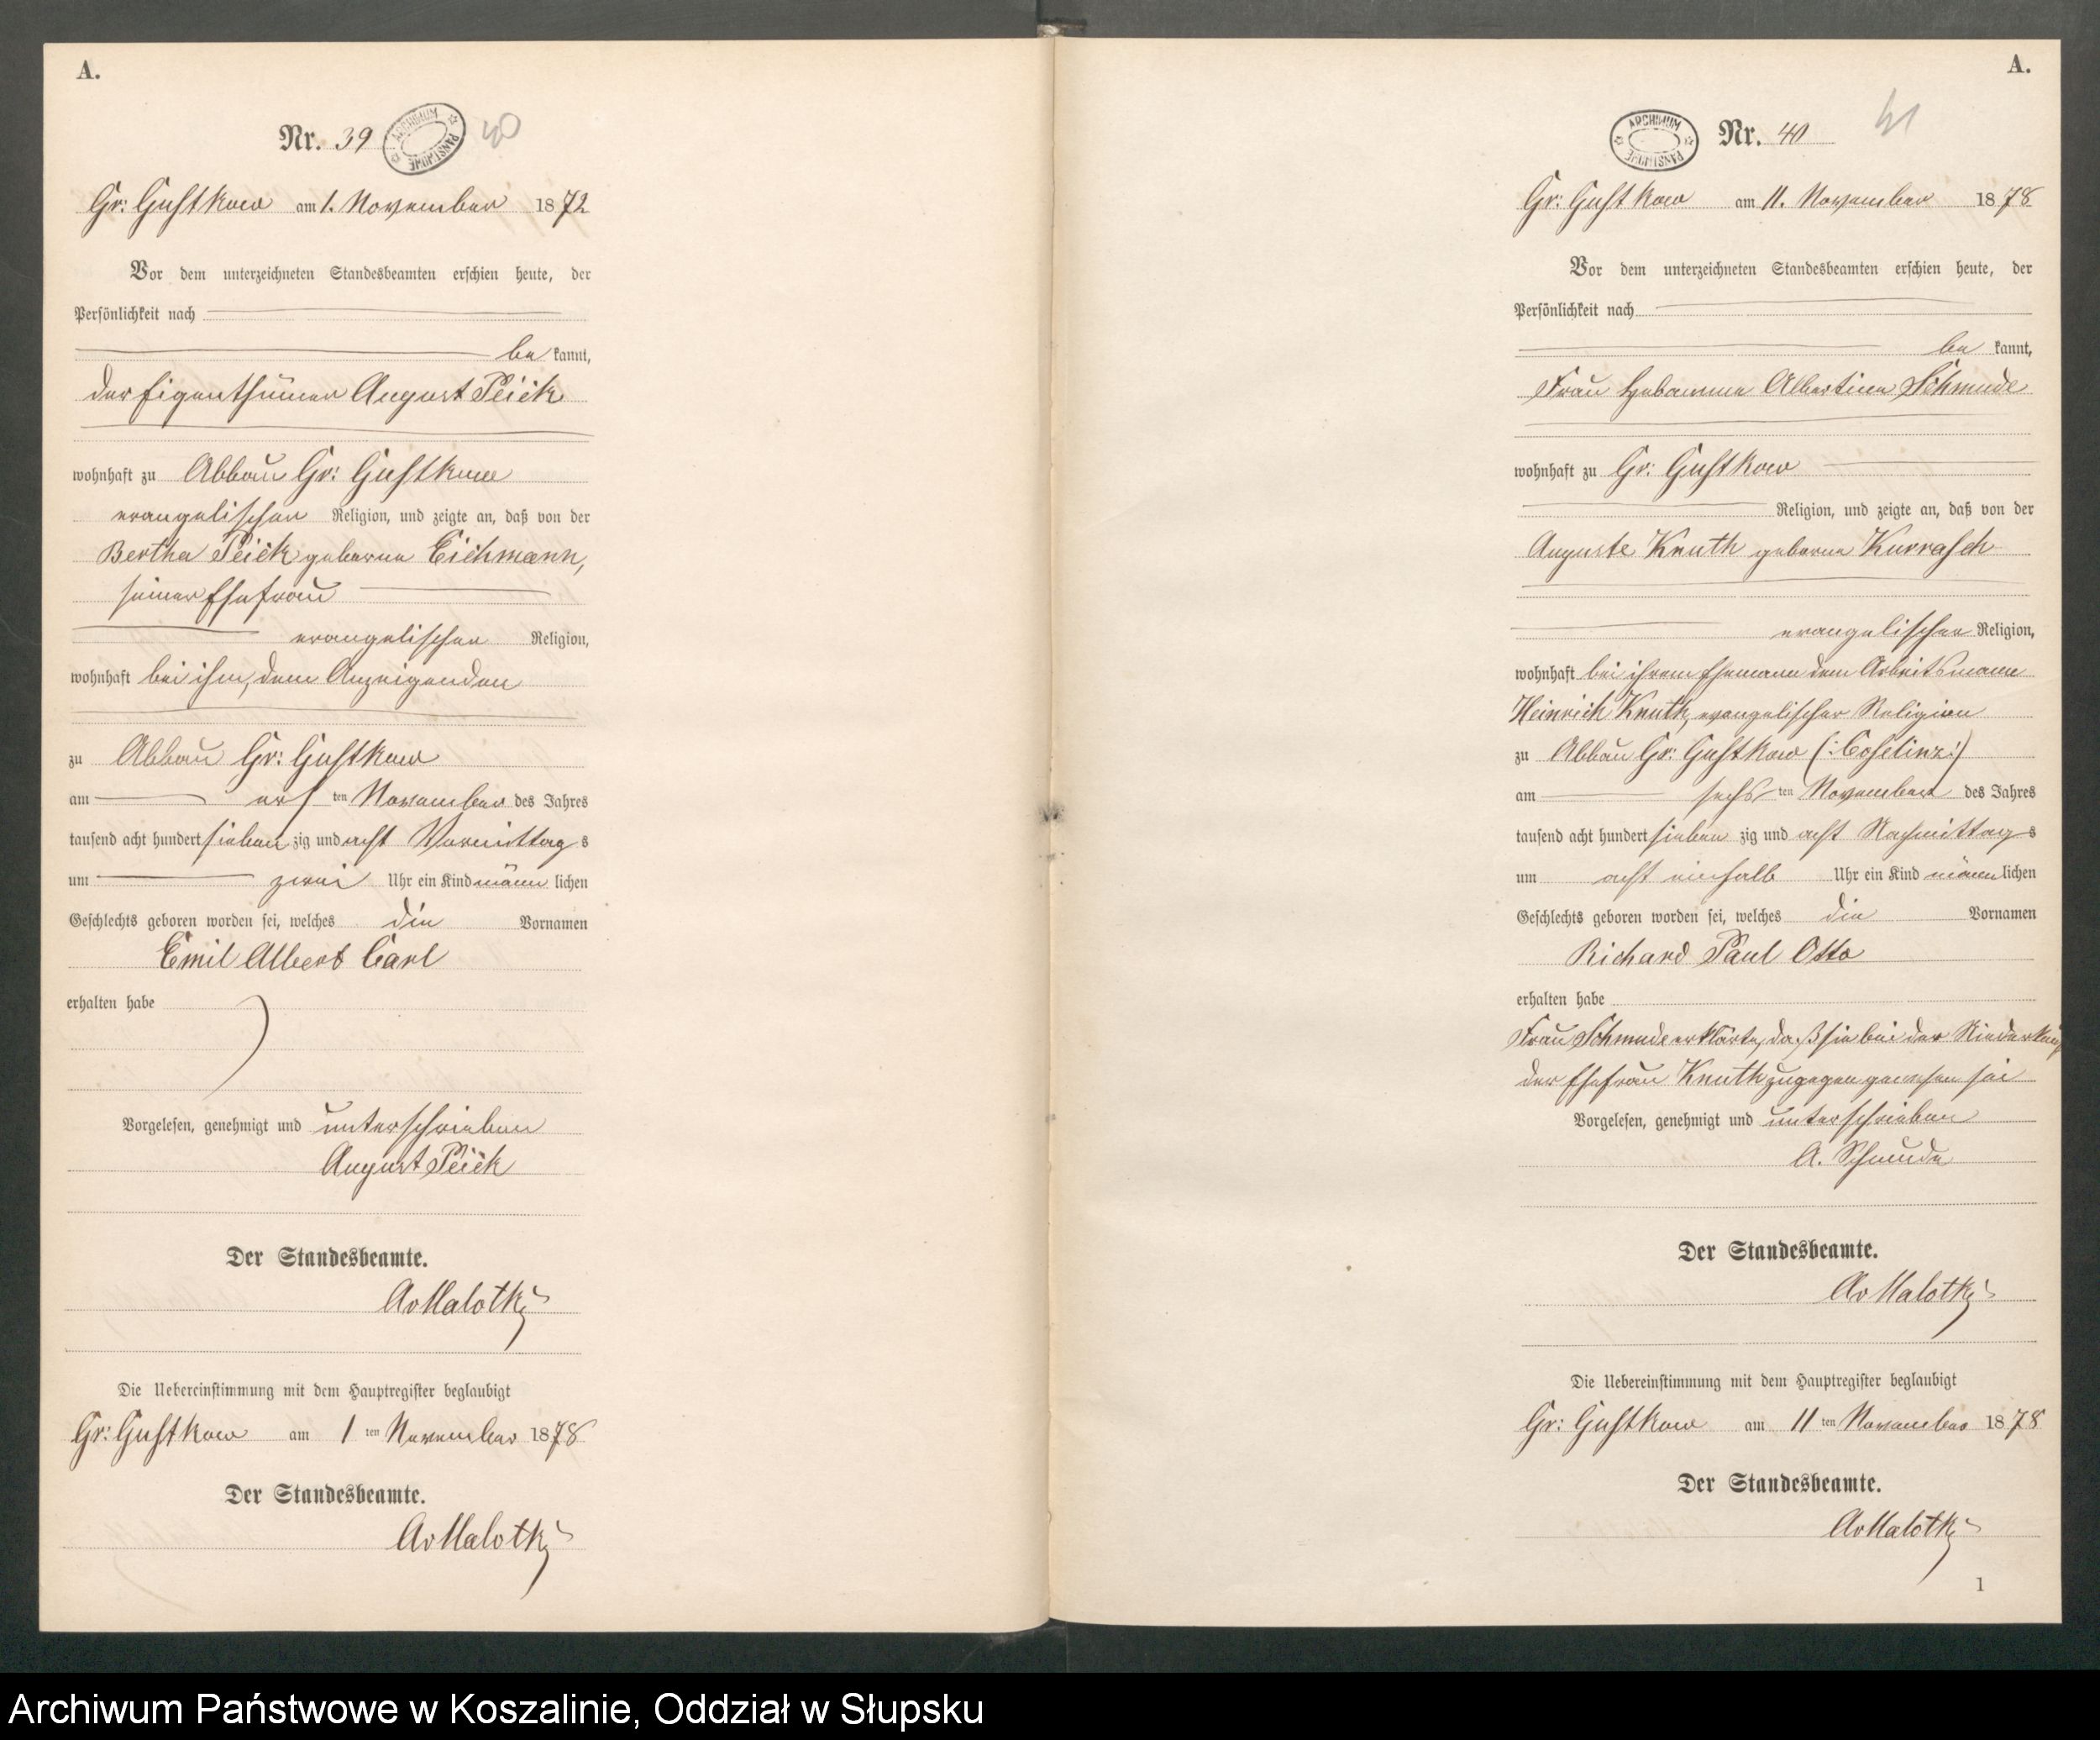 A.
Nr. 39
ARCHIWUM PAŃSTWOWE
40
Gr: Gustkow am 1. November 1872
Vor dem unterzeichneten Standesbeamten erschien heute, der
Persönlichkeit nach
be kannt,
der Eigenthümer August Peick
wohnhaft zu Abbau Gr: Gustkow
evangelischer Religion, und zeigte an, daß von der
Bertha Peick geborne Eichmann,
seiner Ehefrau
evangelischer Religion,
wohnhaft bei ihm, dem Anzeigenden
zu Abbau Gr: Gustkow
am ers ten November des Jahres
tausend acht hundert sieben zig und acht Vormittag s
um zwei Uhr ein Kind männ lichen
Geschlechts geboren worden sei, welches die Vornamen
Emil Albert Carl
erhalten habe
Vorgelesen, genehmigt und unterschrieben
August Peick
Der Standesbeamte.
AvMalotky
Die Uebereinstimmung mit dem Hauptregister beglaubigt
Gr: Gustkow am 1 ten November 1878
Der Standesbeamte.
AvMalotky
A.
ARCHIWUM PAŃSTWOWE
Nr. 40
41
Gr: Gustkow am 11. November 1878
Vor dem unterzeichneten Standesbeamten erschien heute, der
Persönlichkeit nach
be kannt,
Frau Hebamme Albertine Schmude
wohnhaft zu Gr: Gustkow
Religion, und zeigte an, daß von der
Auguste Knuth geborne Kurrasch
evangelischer Religion,
wohnhaft bei ihrem Ehemann dem Arbeitsmann
Heinrich Knuth, evangelischer Religion
zu Abbau Gr: Gustkow (:Coselinz:)
am sechs ten November des Jahres
tausend acht hundert sieben zig und acht Nachmittag s
um acht einhalb Uhr ein Kind männ lichen
Geschlechts geboren worden sei, welches die Vornamen
Richard Paul Otto
erhalten habe
Frau Schmude erklärte, daß sie bei der Niederkunft
der Ehefrau Knuth zugegen gewesen sei
Vorgelesen, genehmigt und unterschrieben
A. Schmude
Der Standesbeamte.
AvMalotky
Die Uebereinstimmung mit dem Hauptregister beglaubigt
Gr: Gustkow am 11 ten November 1878
Der Standesbeamte.
AvMalotky
1
Archiwum Państwowe w Koszalinie, Oddział w Słupsku